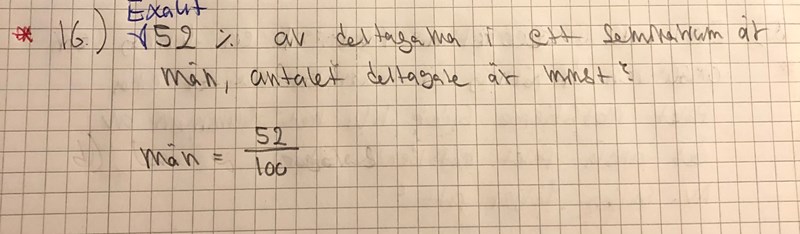 Exakt
* 16.) √52 % av deltagarna i ett seminarium är
män, antalet deltagare är minst?
män = 52/100